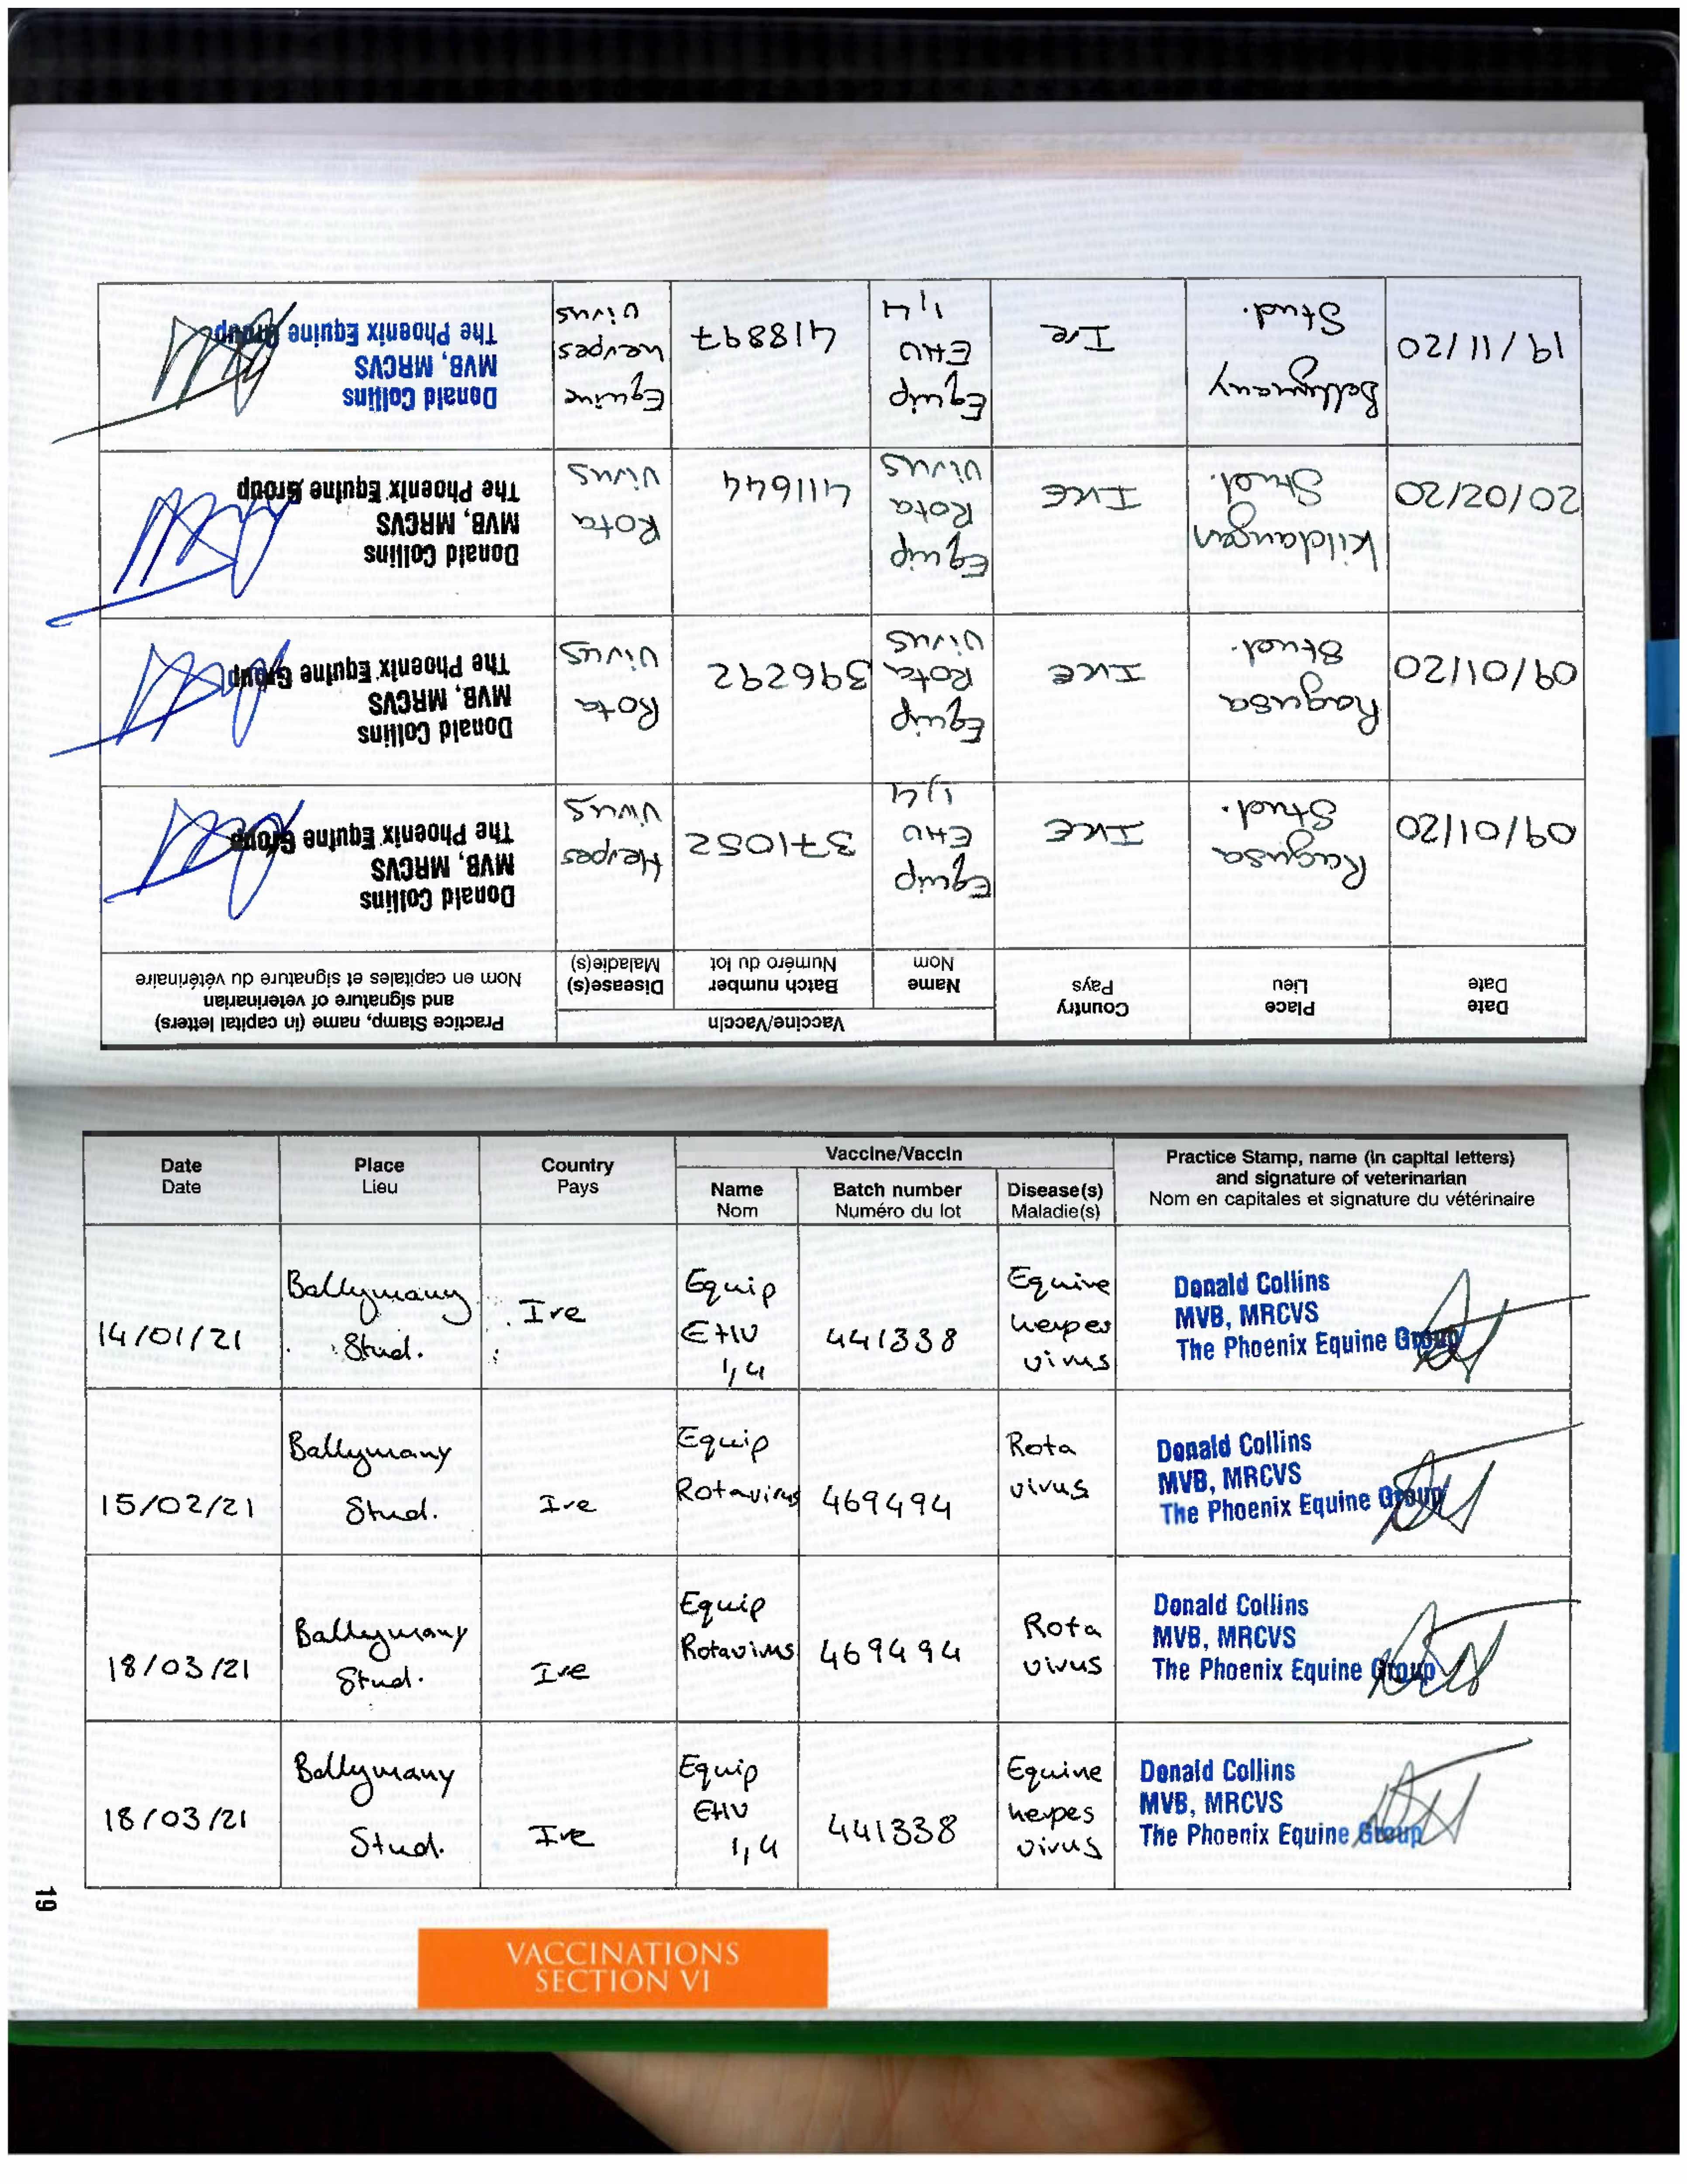 Date
Date
Place
Lieu
Country
Pays
Vaccine/Vaccin
Name
Nom
Batch number
Numéro du lot
Disease(s)
Maladie(s)
Practice Stamp, name (in capital letters)
and signature of veterinarian
Nom en capitales et signature du vétérinaire
09/01/20
Ragusa
Stud.
IRE
Equip
EHV
1,4
371052
Herpes
Virus
Donald Collins
MVB, MRCVS
The Phoenix Equine Group
09/01/20
Ragusa
Stud.
IRE
Equip
Rota
Virus
396292
Rota
Virus
Donald Collins
MVB, MRCVS
The Phoenix Equine Group
20/02/20
Kildangan
Stud.
IRE
Equip
Rota
Virus
411644
Rota
Virus
Donald Collins
MVB, MRCVS
The Phoenix Equine Group
19/11/20
Ballymany
Stud.
Ire
Equip
EHV
1,4
418897
Equine
herpes
virus
Donald Collins
MVB, MRCVS
The Phoenix Equine Group
Date
Date
Place
Lieu
Country
Pays
Vaccine/Vaccin
Name
Nom
Batch number
Numéro du lot
Disease(s)
Maladie(s)
Practice Stamp, name (in capital letters)
and signature of veterinarian
Nom en capitales et signature du vétérinaire
14/01/21
Ballymany
Stud.
Ire
Equip
EHV
1,4
441338
Equine
herpes
virus
Donald Collins
MVB, MRCVS
The Phoenix Equine Group
15/02/21
Ballymany
Stud.
Ire
Equip
Rotavirus
469494
Rota
virus
Donald Collins
MVB, MRCVS
The Phoenix Equine Group
18/03/21
Ballymany
Stud.
Ire
Equip
Rotavirus
469494
Rota
virus
Donald Collins
MVB, MRCVS
The Phoenix Equine Group
18/03/21
Ballymany
Stud.
Ire
Equip
EHV
1,4
441338
Equine
herpes
virus
Donald Collins
MVB, MRCVS
The Phoenix Equine Group
19
VACCINATIONS
SECTION VI